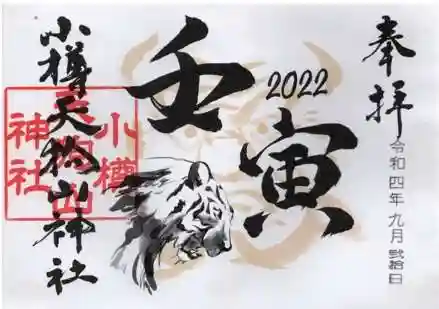 奉拝
令和四年 九月 弐拾日
2022
壬寅
小樽天狗山神社
小樽
天狗山
神社